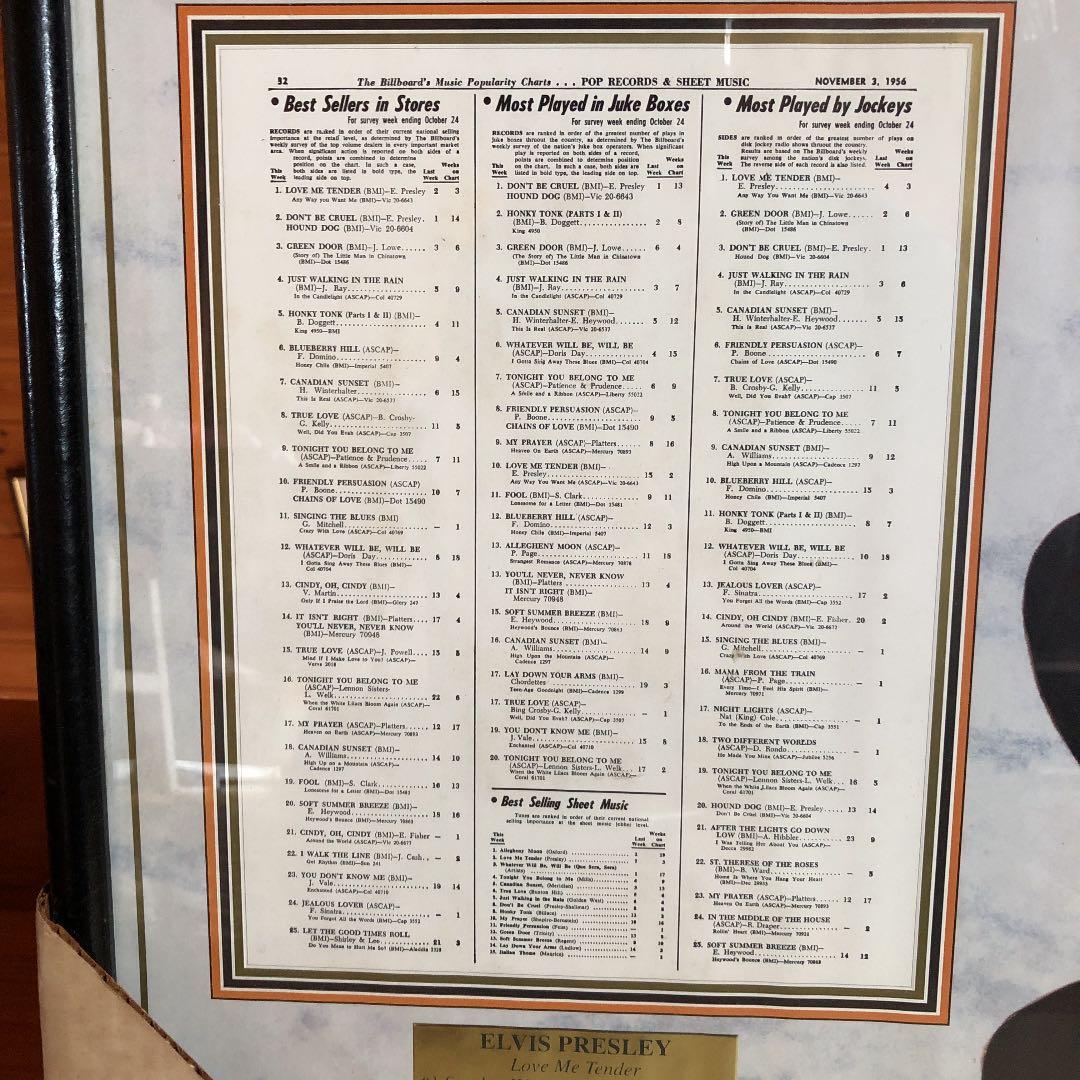 32 The Billboard's Music Popularity Charts . . . POP RECORDS & SHEET MUSIC NOVEMBER 3, 1956
• Best Sellers in Stores
For survey week ending October 24
RECORDS are ranked in order of their current national selling
importance at the retail level, as determined by The Billboard's
weekly survey of the top volume dealers in every important market
area. When significant action is reported on both sides of a
record, points are combined to determine
position on the chart. In such a case,
both sides are listed in bold type, the
leading side on top.
This Week Last Week Weeks on Chart
1. LOVE ME TENDER (BMI)—E. Presley 2 3
Any Way you Want Me (BMI)—Vic 20-6643
2. DON'T BE CRUEL (BMI)—E. Presley. 1 14
HOUND DOG (BMI)—Vic 20-6604
3. GREEN DOOR (BMI)—J. Lowe 3 6
(Story of) The Little Man in Chinatown
(BMI)—Dot 15486
4. JUST WALKING IN THE RAIN
(BMI)—J. Ray 5 9
In the Candlelight (ASCAP)—Col 40729
5. HONKY TONK (Parts I & II) (BMI)—
B. Doggett 4 11
King 4950—BMI
6. BLUEBERRY HILL (ASCAP)—
F. Domino 9 4
Honey Chile (BMI)—Imperial 5407
7. CANADIAN SUNSET (BMI)—
H. Winterhalter 6 15
This Is Real (ASCAP)—Vic 20-6537
8. TRUE LOVE (ASCAP)—B. Crosby-
G. Kelly 11 5
Well, Did You Evah (ASCAP)—Cap 3507
9. TONIGHT YOU BELONG TO ME
(ASCAP)—Patience & Prudence 7 11
A Smile and a Ribbon (ASCAP)—Liberty 55022
10. FRIENDLY PERSUASION (ASCAP)
P. Boone 10 7
CHAINS OF LOVE (BMI)—Dot 15490
11. SINGING THE BLUES (BMI)
G. Mitchell — 1
Crazy With Love (ASCAP)—Col 40769
12. WHATEVER WILL BE, WILL BE
(ASCAP)—Doris Day 8 18
I Gotta Sing Away These Blues (BMI)—
Col 40704
13. CINDY, OH, CINDY (BMI)—
V. Martin 13 4
Only If I Praise the Lord (BMI)—Glory 247
14. IT ISN'T RIGHT (BMI)—Platters 17 4
YOU'LL NEVER, NEVER KNOW
(BMI)—Mercury 70948
15. TRUE LOVE (ASCAP)—J. Powell 15 5
Mind If I Make Love to You? (ASCAP)—
Verve 2018
16. TONIGHT YOU BELONG TO ME
(ASCAP)—Lennon Sisters-
L. Welk 22 6
When the White Lilacs Bloom Again (ASCAP)—
Coral 61701
17. MY PRAYER (ASCAP)—Platters 12 17
Heaven on Earth (ASCAP)—Mercury 70893
18. CANADIAN SUNSET (BMI)—
A. Williams 14 10
High Up on a Mountain (ASCAP)—
Cadence 1297
19. FOOL (BMI)—S. Clark 16 13
Lonesome for a Letter (BMI)—Dot 15481
20. SOFT SUMMER BREEZE (BMI)—
E. Heywood 18 16
Heywood's Bounce (BMI)—Mercury 70863
21. CINDY, OH, CINDY (BMI)—E. Fisher — 1
Around the World (ASCAP)—Vic 20-6677
22. I WALK THE LINE (BMI)—J. Cash — 2
Get Rhythm (BMI)—Sun 241
23. YOU DON'T KNOW ME (BMI)—
J. Vale 19 14
Enchanted (ASCAP)—Col 40710
24. JEALOUS LOVER (ASCAP)—
F. Sinatra — 1
You Forget All the Words (BMI)—Cap 3552
25. LET THE GOOD TIMES ROLL
(BMI)—Shirley & Lee 21 3
Do You Mean to Hurt Me So? (BMI)—Aladdin 3325
• Most Played in Juke Boxes
For survey week ending October 24
RECORDS are ranked in order of the greatest number of plays in
juke boxes thruout the country, as determined by The Billboard's
weekly survey of the nation's juke box operators. When significant
play is reported on both sides of a record,
points are combined to determine position
on the chart. In such a case, both sides are
listed in bold type, the leading side on top.
This Week Last Week Weeks on Chart
1. DON'T BE CRUEL (BMI)—E. Presley 1 13
HOUND DOG (BMI)—Vic 20-6643
2. HONKY TONK (PARTS I & II)
(BMI)—B. Doggett 2 8
King 4950
3. GREEN DOOR (BMI)—J. Lowe 6 4
(The Story of) The Little Man in Chinatown
(BMI)—Dot 15486
4. JUST WALKING IN THE RAIN
(BMI)—J. Ray 3 7
In the Candlelight (ASCAP)—Col 40729
5. CANADIAN SUNSET (BMI)—
H. Winterhalter-E. Heywood 5 12
This Is Real (ASCAP)—Vic 20-6537
6. WHATEVER WILL BE, WILL BE
(ASCAP)—Doris Day 4 15
I Gotta Sing Away These Blues (BMI)—Col 40704
7. TONIGHT YOU BELONG TO ME
(ASCAP)—Patience & Prudence 6 9
A Smile and a Ribbon (ASCAP)—Liberty 55022
8. FRIENDLY PERSUASION (ASCAP)—
P. Boone 9 5
CHAINS OF LOVE (BMI)—Dot 15490
9. MY PRAYER (ASCAP)—Platters 8 16
Heaven On Earth (ASCAP)—Mercury 70893
10. LOVE ME TENDER (BMI)—
E. Presley 15 2
Any Way You Want Me (BMI)—Vic 20-6643
11. FOOL (BMI)—S. Clark 9 11
Lonesome for a Letter (BMI)—Dot 15481
12. BLUEBERRY HILL (ASCAP)—
F. Domino 12 3
Honey Chile (BMI)—Imperial 5407
13. ALLEGHENY MOON (ASCAP)—
P. Page 11 18
Strangest Romance (ASCAP)—Mercury 70878
13. YOU'LL NEVER, NEVER KNOW
(BMI)—Platters 13 4
IT ISN'T RIGHT (BMI)—
Mercury 70948
15. SOFT SUMMER BREEZE (BMI)—
E. Heywood 18 9
Heywood's Bounce (BMI)—Mercury 70863
16. CANADIAN SUNSET (BMI)—
A. Williams 14 9
High Upon the Mountain (ASCAP)—
Cadence 1297
17. LAY DOWN YOUR ARMS (BMI)—
Chordettes 19 3
Teen-Age Goodnight (BMI)—Cadence 1299
17. TRUE LOVE (ASCAP)—
Bing Crosby-G. Kelly — 1
Well, Did You Evah? (ASCAP)—Cap 3507
19. YOU DON'T KNOW ME (BMI)—
J. Vale 15 8
Enchanted (ASCAP)—Col 40710
20. TONIGHT YOU BELONG TO ME
(ASCAP)—Lennon Sisters-L. Welk 17 2
When the White Lilacs Bloom Again (ASCAP)—
Coral 61701
• Best Selling Sheet Music
Tunes are ranked in order of their current national
selling importance at the sheet music jobber level.
This Week Last Week Weeks on Chart
1. Allegheny Moon (Oxford)
2. Love Me Tender (Presley)
3. Whatever Will Be, Will Be (Que Sera, Sera)
(Artists)
4. Tonight You Belong to Me (Mills)
5. Canadian Sunset (Meridian)
6. True Love (Buxton Hill)
7. Just Walking in the Rain (Golden West)
8. Don't Be Cruel (Presley-Shalimar)
9. Honky Tonk (Billace)
10. My Prayer (Shapiro-Bernstein)
11. Friendly Persuasion (Feist)
12. Green Door (Trinity)
13. Soft Summer Breeze (Regent)
14. Lay Down Your Arms (Ludlow)
15. Italian Theme (Maurice)
• Most Played by Jockeys
For survey week ending October 24
SIDES are ranked in order of the greatest number of plays on
disk jockey radio shows thruout the country.
Results are based on The Billboard's weekly
survey among the nation's disk jockeys.
The reverse side of each record is also listed.
This Week Last Week Weeks on Chart
1. LOVE ME TENDER (BMI)—
E. Presley 4 3
Any Way You Want Me (BMI)—Vic 20-6643
2. GREEN DOOR (BMI)—J. Lowe 2 6
(Story of) The Little Man in Chinatown
(BMI)—Dot 15486
3. DON'T BE CRUEL (BMI)—E. Presley. 1 13
Hound Dog (BMI)—Vic 20-6604
4. JUST WALKING IN THE RAIN
(BMI)—J. Ray 3 6
In the Candlelight (ASCAP)—Col 40729
5. CANADIAN SUNSET (BMI)—
H. Winterhalter-E. Heywood 5 15
This Is Real (ASCAP)—Vic 20-6537
6. FRIENDLY PERSUASION (ASCAP)—
P. Boone 6 7
Chains of Love (BMI)—Dot 15490
7. TRUE LOVE (ASCAP)—
B. Crosby-G. Kelly 11 5
Well, Did You Evah? (ASCAP)—Cap 3507
8. TONIGHT YOU BELONG TO ME
(ASCAP)—Patience & Prudence 7 11
A Smile and a Ribbon (ASCAP)—Liberty 55022
9. CANADIAN SUNSET (BMI)—
A. Williams 9 12
High Upon a Mountain (ASCAP)—Cadence 1297
10. BLUEBERRY HILL (ASCAP)—
F. Domino 15 3
Honey Chile (BMI)—Imperial 5407
11. HONKY TONK (Parts I & II) (BMI)—
B. Doggett 8 7
King 4950—BMI
12. WHATEVER WILL BE, WILL BE
(ASCAP)—Doris Day 10 18
I Gotta Sing Away These Blues (BMI)—
Col 40704
13. JEALOUS LOVER (ASCAP)—
F. Sinatra 17 2
You Forget All the Words (BMI)—Cap 3552
14. CINDY, OH CINDY (BMI)—E. Fisher. 20 2
Around the World (ASCAP)—Vic 20-6677
15. SINGING THE BLUES (BMI)—
G. Mitchell — 1
Crazy With Love (ASCAP)—Col 40769
16. MAMA FROM THE TRAIN
(ASCAP)—P. Page — 1
Every Time—I Feel His Spirit (BMI)—
Mercury 70971
17. NIGHT LIGHTS (ASCAP)—
Nat (King) Cole — 1
To the Ends of the Earth (ASCAP)—Cap 3551
18. TWO DIFFERENT WORLDS
(ASCAP)—D. Rondo — 1
He Made You Mine (ASCAP)—Jubilee 5256
19. TONIGHT YOU BELONG TO ME
(ASCAP)—Lennon Sisters-L. Welk 16 5
When the White Lilacs Bloom Again (ASCAP)—
Coral 61701
20. HOUND DOG (BMI)—E. Presley 13 14
Don't Be Cruel (BMI)—Vic 20-6604
21. AFTER THE LIGHTS GO DOWN
LOW (BMI)—A. Hibbler 23 9
I Was Telling Her About You (ASCAP)—
Decca 29982
22. ST. THERESE OF THE ROSES
(BMI)—B. Ward — 5
Home Is Where You Hang Your Heart
(BMI)—Dec 29933
23. MY PRAYER (ASCAP)—Platters 12 17
Heaven On Earth (ASCAP)—Mercury 70893
24. IN THE MIDDLE OF THE HOUSE
(ASCAP)—R. Draper — 2
Rollin' Heart (BMI)—Mercury 70921
25. SOFT SUMMER BREEZE (BMI)—
E. Heywood 14 12
Heywood's Bounce (BMI)—Mercury 70863
ELVIS PRESLEY
Love Me Tender